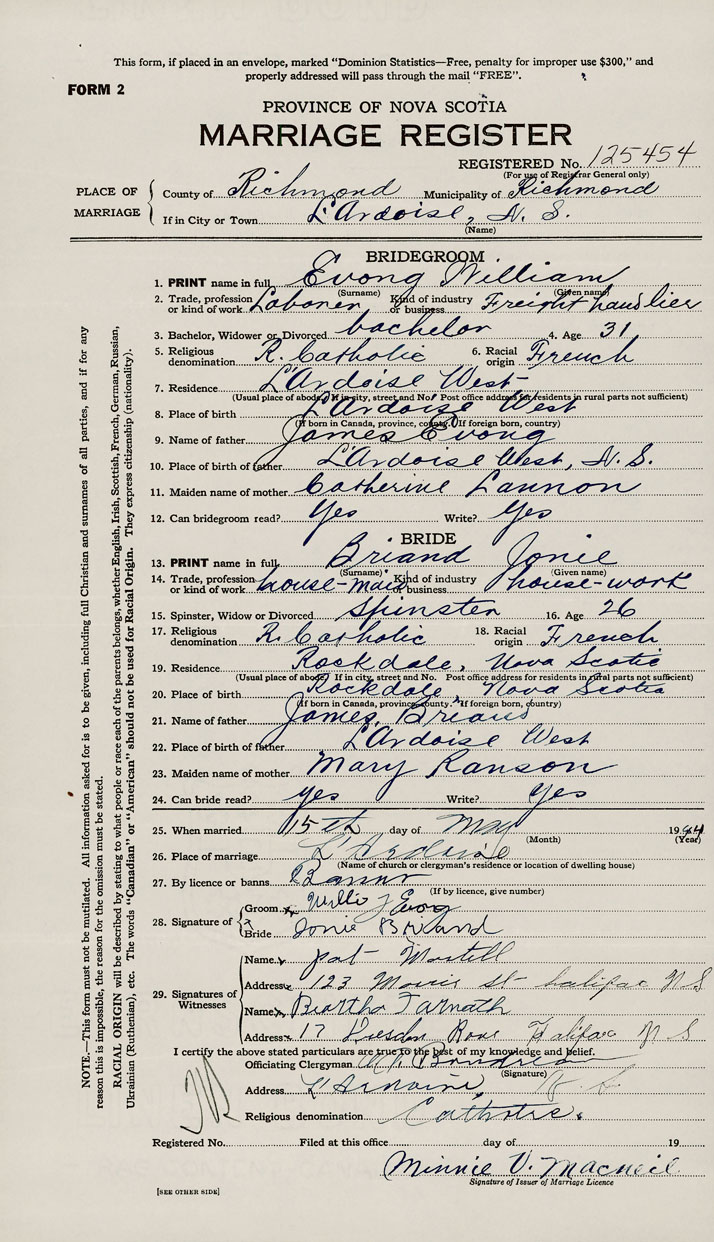 This form, if placed in an envelope, marked "Dominion Statistics—Free, penalty for improper use $300," and
properly addressed will pass through the mail "FREE".
FORM 2
PROVINCE OF NOVA SCOTIA
MARRIAGE REGISTER
REGISTERED No. 125454
(For use of Registrar General only)
PLACE OF MARRIAGE
County of Richmond Municipality of Richmond
If in City or Town L'Ardoise, N. S.
(Name)
BRIDEGROOM
1. PRINT name in full Evong William
(Surname) (Given name)
2. Trade, profession or kind of work Laborer Kind of industry or business Freight handlier
3. Bachelor, Widower or Divorced bachelor 4. Age 31
5. Religious denomination R. Catholic 6. Racial origin French
7. Residence L'Ardoise West
(Usual place of abode. If in city, street and No. Post office address for residents in rural parts not sufficient)
8. Place of birth L'Ardoise West
(If born in Canada, province, county. If foreign born, country)
9. Name of father James Evong
10. Place of birth of father L'Ardoise West, N.S.
11. Maiden name of mother Catherine Lannon
12. Can bridegroom read? Yes Write? Yes
BRIDE
13. PRINT name in full Briand Jonie
(Surname) (Given name)
14. Trade, profession or kind of work house-maid Kind of industry or business house-work
15. Spinster, Widow or Divorced Spinster 16. Age 26
17. Religious denomination R. Catholic 18. Racial origin French
19. Residence Rockdale, Nova Scotia
(Usual place of abode. If in city, street and No. Post office address for residents in rural parts not sufficient)
20. Place of birth Rockdale, Nova Scotia
(If born in Canada, province, county. If foreign born, country)
21. Name of father James Briand
22. Place of birth of father L'Ardoise West
23. Maiden name of mother Mary Ranson
24. Can bride read? yes Write? Yes
25. When married 15th day of May 1944
(Month) (Year)
26. Place of marriage L'Ardoise
(Name of church or clergyman's residence or location of dwelling house)
27. By licence or banns Banns
(If by licence, give number)
28. Signature of
Groom Willie J Evong
Bride Jonie Briand
29. Signatures of Witnesses
Name Pat
Address 123 Morris St Halifax N S
Name Beartha
Address 17 Row Halifax N S
I certify the above stated particulars are true to the best of my knowledge and belief.
Officiating Clergyman
(Signature)
Address L'Ardoise,
Religious denomination Catholic.
Registered No. Filed at this office day of 19
Minnie V. Macneil
Signature of Issuer of Marriage Licence
[SEE OTHER SIDE]
NOTE.—This form must not be mutilated. All information asked for is to be given, including full Christian and surnames of all parties, and if for any
reason this is impossible, the reason for the omission must be stated.
RACIAL ORIGIN will be described by stating to what people or race each of the parents belongs, whether English, Irish, Scottish, French, German, Russian,
Ukrainian (Ruthenian), etc. The words "Canadian" or "American" should not be used for Racial Origin. They express citizenship (nationality).